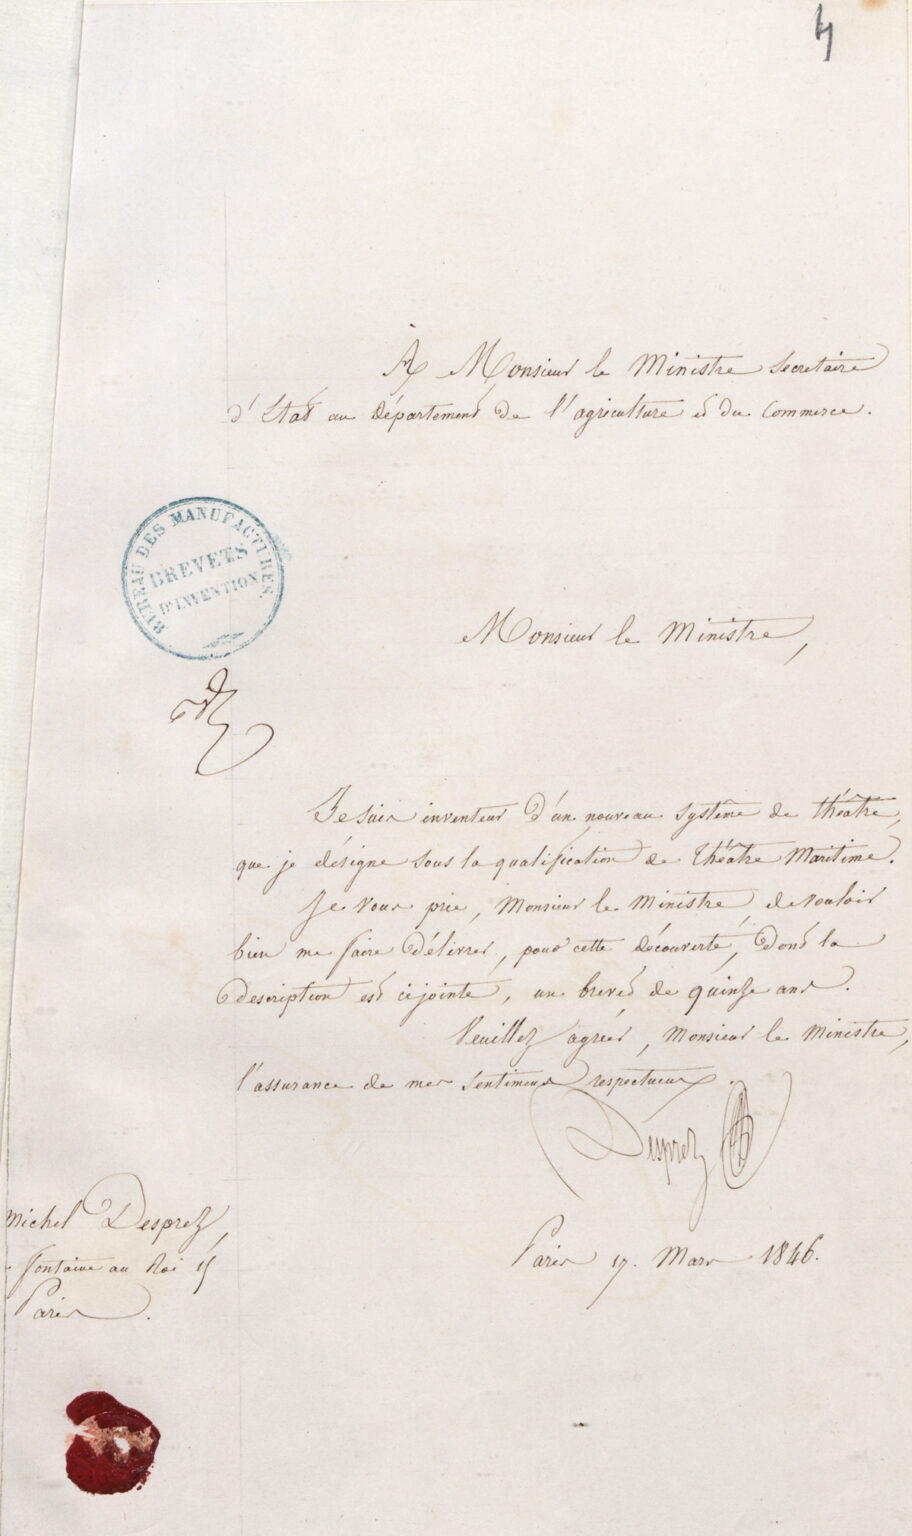 4
A Monsieur le Ministre Secretaire
d'Etat au département de l'agriculture et du Commerce.
BUREAU DES MANUFACTURES.
BREVETS
D'INVENTION
Monsieur le Ministre,
Je suis inventeur d'un nouveau système de théâtre,
que je désigne sous la qualification de théâtre Maritime.
Je vous prie, Monsieur le Ministre de vouloir
bien me faire délivrer, pour cette découverte, dont la
description est cijointe, un brevet de quinze ans.
Veuillez agréer, Monsieur le Ministre,
l'assurance de mes sentimens respectueux.
Desprez
Michel Desprez,
fontaine au Roi 15
Paris.
Paris 17. Mars 1846.